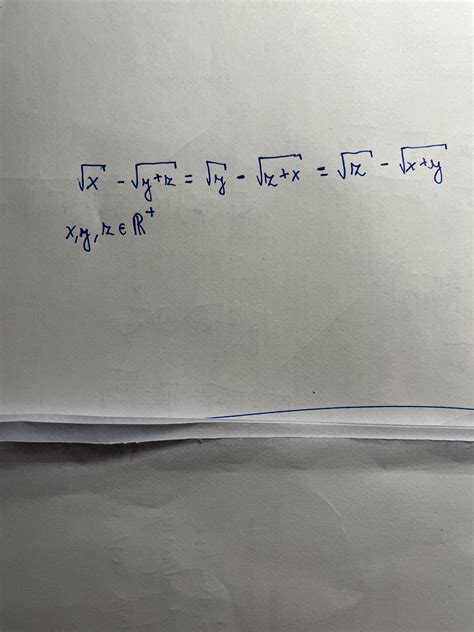 √x - √y+z = √y - √z+x = √z - √x+y
x,y,z ∈ ℝ⁺